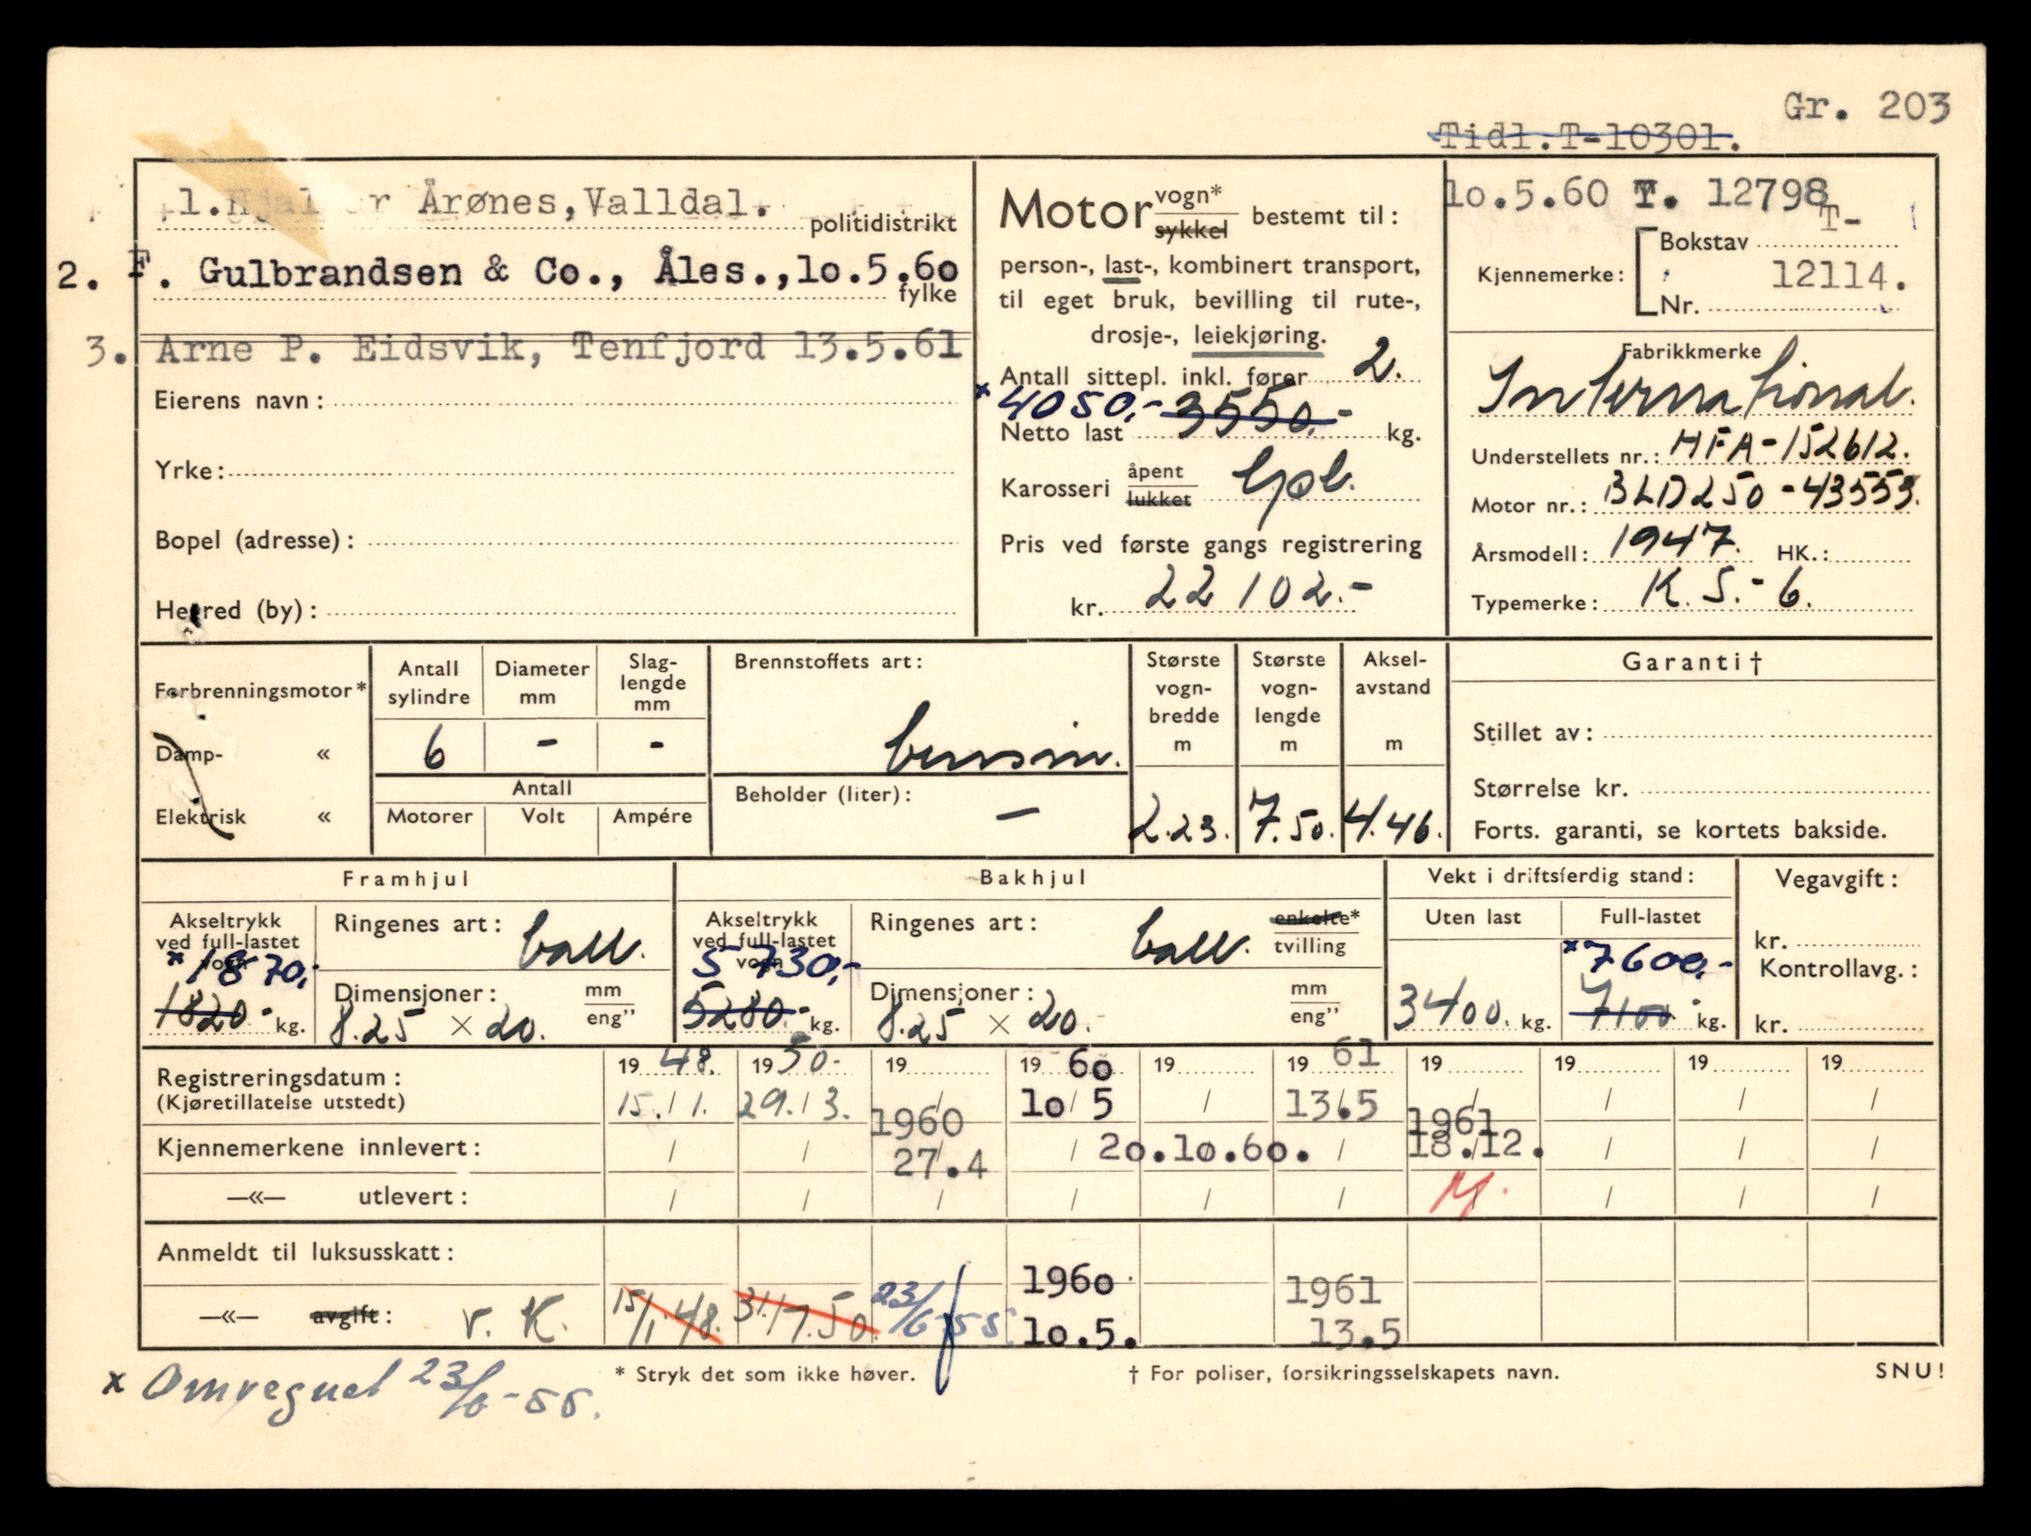 Gr. 203
Tidl.T-10301.
1.Hjalmar Årønes,Valldal.
politidistrikt
2. F. Gulbrandsen & Co., Åles.,1o.5.6o
fylke
3. Arne P. Eidsvik, Tenfjord 13.5.61
Eierens navn:
Yrke:
Bopel (adresse):
Herred (by):
Motor vogn* sykkel bestemt til:
person-, last-, kombinert transport,
til eget bruk, bevilling til rute-,
drosje-, leiekjøring.
Antall sittepl. inkl. fører 2.
x 4050,- 3550.-
Netto last kg.
Karosseri åpent lukket
Pris ved første gangs registrering
kr. 22102.-
1o.5.60 T. 12798
T-
Bokstav
Kjennemerke:
12114.
Nr.
Fabrikkmerke
International.
Understellets nr.: HFA-152612.
Motor nr.: BLD250-43553.
Årsmodell: 1947. HK.:
Typemerke: K.S.-6.
Forbrenningsmotor*
Damp- «
Elektrisk «
Antall sylindre
Diameter mm
Slag-lengde mm
6 - -
Antall
Motorer Volt Ampére
Brennstoffets art:
bensin.
Beholder (liter):
-
Største vogn-bredde m
2.23.
Største vogn-lengde m
7.50.
Aksel-avstand m
4.46.
Garanti†
Stillet av:
Størrelse kr.
Forts. garanti, se kortets bakside.
Framhjul
Akseltrykk ved full-lastet vogn
x 1870,-
1820- kg.
Ringenes art: ball.
Dimensjoner: mm eng"
8.25 × 20.
Bakhjul
Akseltrykk ved full-lastet vogn
5730,-
5280.- kg.
Ringenes art: ball. enkelte* tvilling
Dimensjoner: mm eng"
8.25 × 20.-
Vekt i driftsferdig stand:
Uten last Full-lastet
x 7600,-
3400. kg. 7100- kg.
Vegavgift:
kr.
Kontrollavg.:
kr.
Registreringsdatum: 19 48. 19 50- 19 19 6o 19 19 61 19 19 19 19
(Kjøretillatelse utstedt) 15./1. 29./3. / 1o/ 5 / 13.5 / / / /
1960 1961
Kjennemerkene innlevert: / / 27.4 / 2o.1o.6o. / 18.12. / / /
—«— utlevert: / / / / / / M. / / /
Anmeldt til luksusskatt:
1960 1961
—«— avgift: v. K. 15/1.48. 31./7.50. 23/6-55. 1o.5. 13.5
x Omregnet 23/6-55.
* Stryk det som ikke høver.
† For poliser, forsikringsselskapets navn.
SNU!